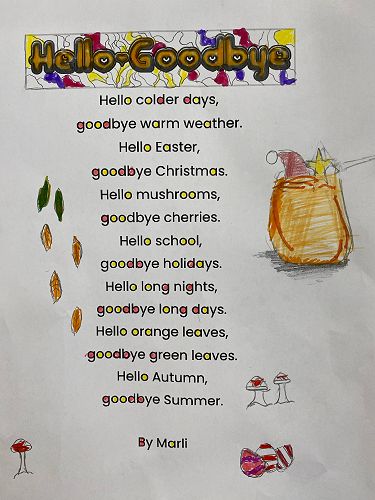 Hello-Goodbye
Hello colder days,
goodbye warm weather.
Hello Easter,
goodbye Christmas.
Hello mushrooms,
goodbye cherries.
Hello school,
goodbye holidays.
Hello long nights,
goodbye long days.
Hello orange leaves,
goodbye green leaves.
Hello Autumn,
goodbye Summer.
By Marli